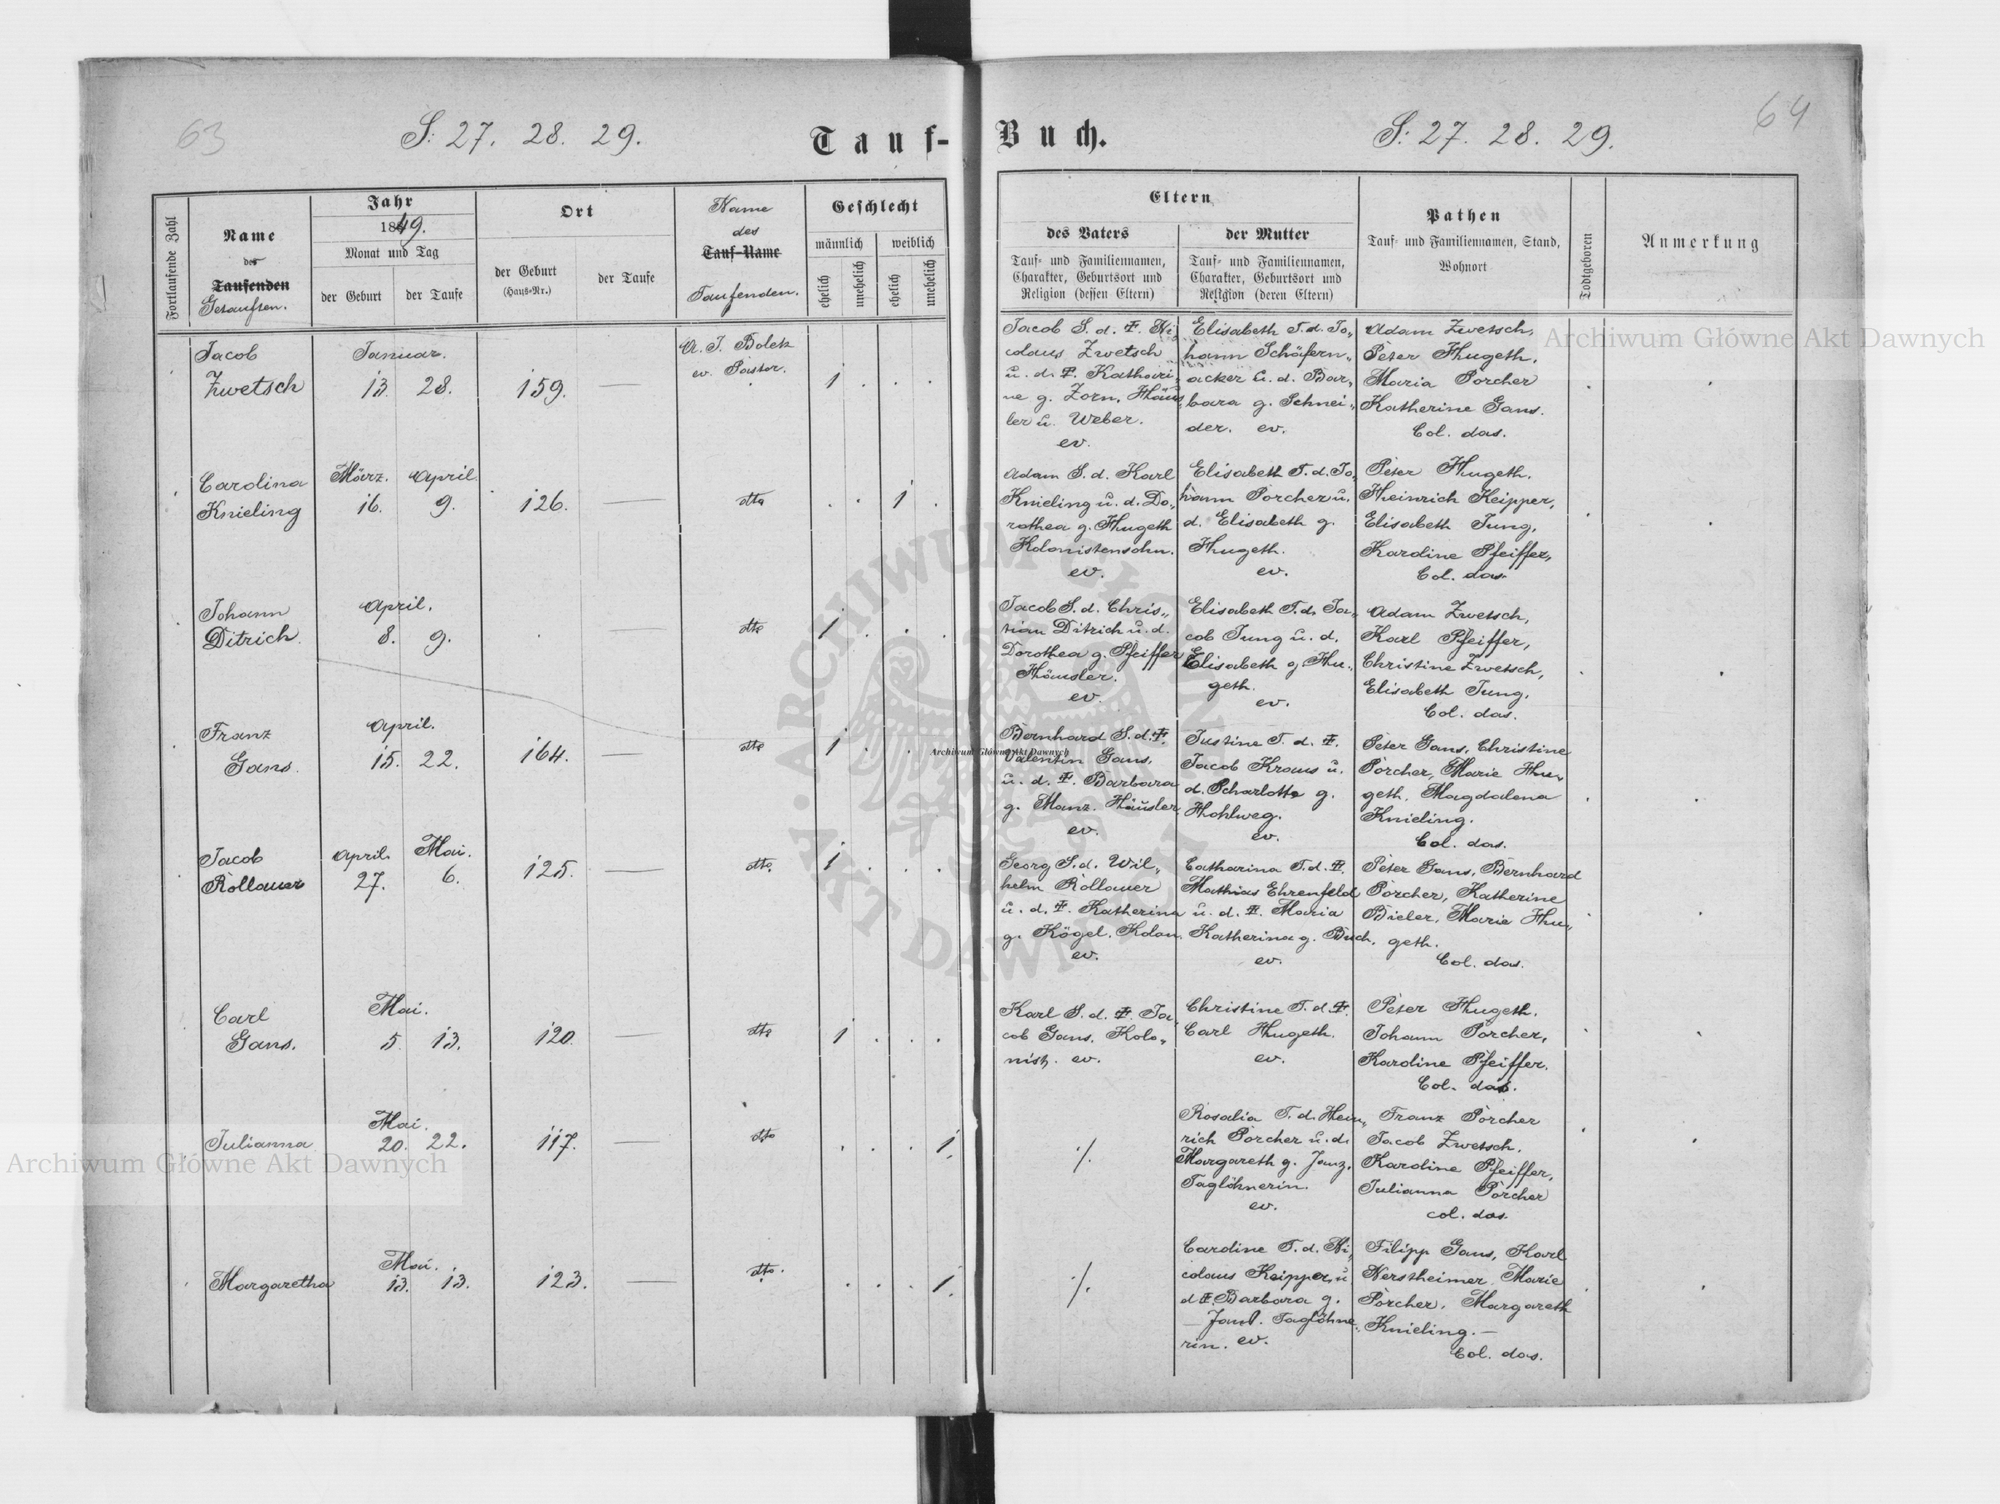 63
S: 27. 28. 29.
Tauf-
Buch.
S: 27. 28. 29.
64
Fortlaufende Zahl
Name
des
Taufenden
Getauften.
Jahr
1849.
Monat und Tag
der Geburt
der Taufe
Ort
der Geburt
(Haus-Nr.)
der Taufe
Name
des
Tauf-Name
Taufenden.
Geschlecht
männlich
weiblich
ehelich
unehelich
ehelich
unehelich
Eltern
des Vaters
Tauf- und Familiennamen,
Charakter, Geburtsort und
Religion (dessen Eltern)
der Mutter
Tauf- und Familiennamen,
Charakter, Geburtsort und
Religion (deren Eltern)
Pathen
Tauf- und Familiennamen, Stand,
Wohnort
Todtgeboren
Anmerkung
Jacob
Zwetsch
Januar.
13. 28.
159.
A. J. Bolek
ev. Pastor.
1
Jacob S. d. Ni
colaus Zwetsch
u. d. Kathari„
ne g. Zorn, Häus
ler u. Weber.
ev.
Elisabeth T. d. Jo„
hann Schäfern„
acker u. d. Bar„
bara g. Schnei„
der. ev.
Adam Zwetsch,
Peter Hugeth.
Maria Porcher
Katherine Gans.
Col. das.
Carolina
Knieling
März. April
16. 9.
126.
dto
1
Adam S. d. Karl
Knieling u. d. Do„
rothea g. Hugeth
Kolonistensohn.
ev.
Elisabeth T. d. Jo„
hann Porcher u.
d. Elisabeth g.
Hugeth.
ev.
Peter Hugeth.
Heinrich Keipper,
Elisabeth Jung,
Karoline Pfeiffer,
Col. das.
Johann
Ditrich.
April.
8. 9.
dto
1
Jacob S. d. Chris„
tian Ditrich u. d.
Dorothea g. Pfeiffer
Häusler.
ev.
Elisabeth T. d. Ja„
cob Jung u. d.
Elisabeth g. Hu„
geth.
ev.
Adam Zwetsch,
Karl Pfeiffer,
Christine Zwetsch,
Elisabeth Jung.
Col. das.
Franz
Gans.
April.
15. 22.
164.
dto
1
Bernhard S. d.
Valentin Gans,
u. d. Barbara
g. Manz. Häusler
ev.
Justine T. d.
Jacob Kraus u.
d. Scharlotte g.
Hohlweg.
ev.
Peter Gans, Christine
Porcher, Marie Hu„
geth, Magdalena
Knieling.
Col. das.
Jacob
Rollauer
April. Mai.
27. 6.
125.
dto
1
Georg S. d. Wil„
helm Rollauer
u. d. Katherina
g. Kögel. Kolon.
ev.
Catharina T. d.
Mathias Ehrenfeld
u. d. Maria
Katherina g. Buch.
ev.
Peter Gans, Bernhard
Porcher, Katherine
Bieler, Marie Hu„
geth.
Col. das.
Carl
Gans.
Mai.
5. 13.
120.
dto
1
Karl S. d. Ja„
cob Gans, Kolo„
nist. ev.
Christine T. d.
Carl Hugeth.
ev.
Peter Hugeth.
Johann Porcher,
Karoline Pfeiffer.
Col. das.
Julianna
Mai.
20. 22.
117.
dto
1.
./.
Rosalia T. d. Hein„
rich Porcher u. d.
Margareth g. Janz.
Taglöhnerin.
ev.
Franz Porcher
Jacob Zwetsch.
Karoline Pfeiffer,
Julianna Porcher
col. das.
Margaretha
Mai.
13. 13.
123.
dto.
1.
./.
Caroline T. d. Ni„
colaus Keipper u
d. Barbara g.
Taglöhne„
rin. ev.
Filipp Gans, Karl
Nerstheimer, Marie
Porcher, Margareth
Knieling.—
Col. das.
Archiwum Główne Akt Dawnych
Archiwum Główne Akt Dawnych
Archiwum Główne Akt Dawnych
ARCHIWUM GŁÓWNE AKT DAWNYCH